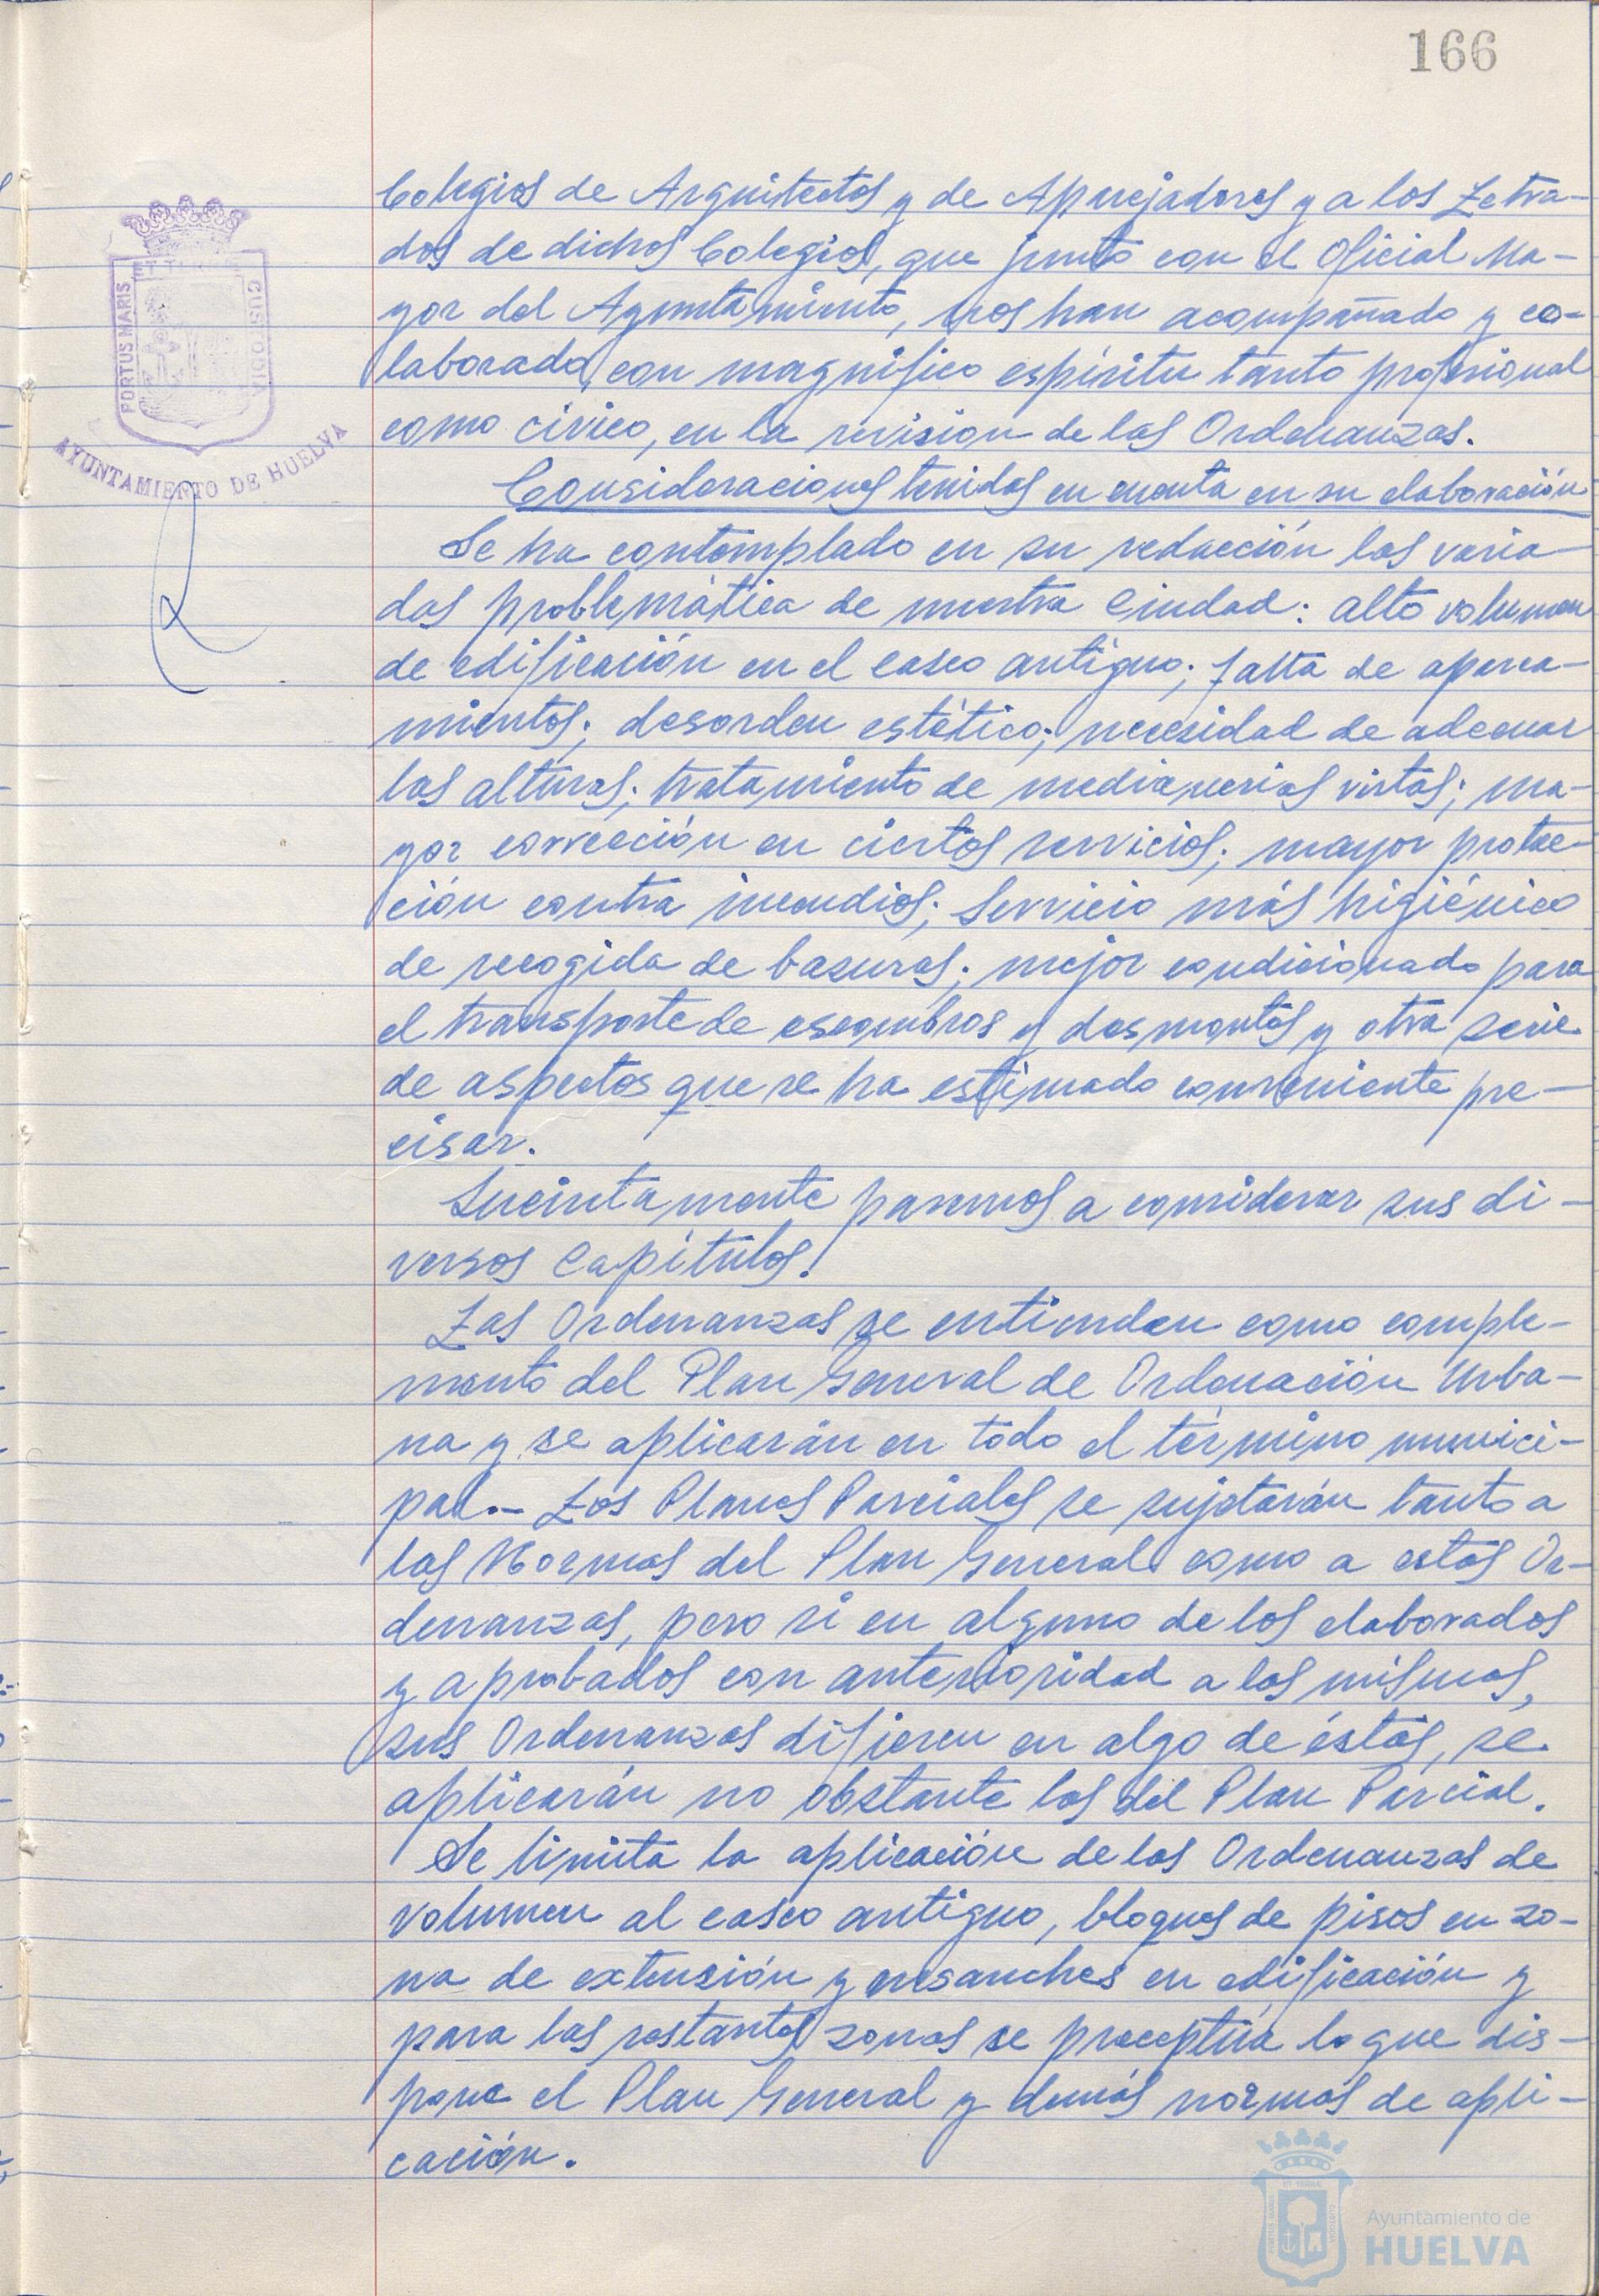 166
Colegios de Arquitectos y de Aparejadores y a los Letra-
dos de dichos Colegios, que junto con el Oficial Ma-
yor del Ayuntamiento, nos han acompañado y co-
laborado, con magnífico espíritu tanto profesional
como cívico, en la revisión de las Ordenanzas.
Consideraciones tenidas en cuenta en su elaboración
Se ha contemplado en su redacción las varia-
das problemática de nuestra Ciudad: alto volumen
de edificación en el casco antiguo; falta de aparca-
mientos; desorden estético; necesidad de adecuar
las alturas; tratamiento de medianerias vistas; ma-
yor corrección en ciertos servicios; mayor protec-
ción contra incendios; Servicio más higiénico
de recogida de basuras; mejor condicionado para
el transporte de escombros y desmontes y otra serie
de aspectos que se ha estimado conveniente pre-
cisar.
Sucintamente pasemos a considerar sus di-
versos Capítulos:
Las Ordenanzas se entienden como comple-
mento del Plan General de Ordenación Urba-
na y se aplicarán en todo el término munici-
pal.- Los Planes Parciales se sujetarán tanto a
las Normas del Plan General como a estas Or-
denanzas, pero si en alguno de los elaborados
y aprobados con anterioridad a las mismas,
sus Ordenanzas difieren en algo de éstas, se
aplicarán no obstante las del Plan Parcial.
Se limita la aplicación de las Ordenanzas de
volumen al casco antiguo, bloques de pisos en zo-
na de extensión y ensanches en edificación y
para las restantes zonas se preceptúa lo que dis-
pone el Plan General y demás normas de apli-
cación.
PORTUS MARIS
ET TERRAE
CUSTODIA
AYUNTAMIENTO DE HUELVA
Ayuntamiento de
HUELVA